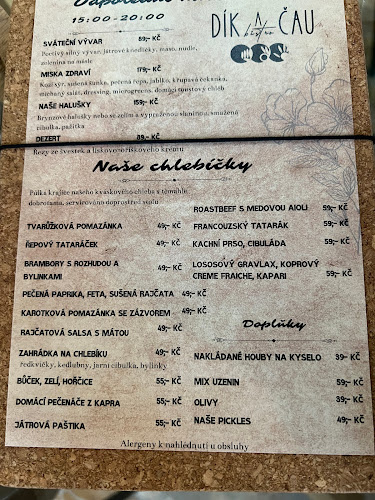 15:00-20:00
DÍK A ČAU
bistro
SVÁTEČNÍ VÝVAR 89,- KČ
Poctivý silný vývar, játrové knedlíčky, maso, nudle,
zelenina na másle
MISKA ZDRAVÍ 179,- KČ
Kozí sýr, sušená šunka, pečená řepa, jablko, křupavá čekanka,
míchaný salát, dressing, microgreens, domácí toustový chléb
NAŠE HALUŠKY 159,- KČ
Bryndzové halušky nebo se zelím a vypraženou slaninou, smažená
cibulka, pažitka
DEZERT 89,- KČ
Řezy ze švestek a lískovooříškového krému
Naše chlebíčky
Půlka krajíce našeho kváskového chleba s těmihle
dobrotama, servírováno doprostřed stolu
TVARŮŽKOVÁ POMAZÁNKA 49,- KČ
ŘEPOVÝ TATARÁČEK 49,- KČ
BRAMBORY S ROZHUDOU A
BYLINKAMI 49,- KČ
PEČENÁ PAPRIKA, FETA, SUŠENÁ RAJČATA 49,- KČ
KAROTKOVÁ POMAZÁNKA SE ZÁZVOREM 49,- KČ
RAJČATOVÁ SALSA S MÁTOU 49,- KČ
ZAHRÁDKA NA CHLEBÍKU 49,- KČ
ředkvičky, kedlubny, jarní cibulka, bylinky
BŮČEK, ZELÍ, HOŘČICE 55,- KČ
DOMÁCÍ PEČENÁČE Z KAPRA 55,- KČ
JÁTROVÁ PAŠTIKA 55,- KČ
ROASTBEEF S MEDOVOU AIOLI 59,- KČ
FRANCOUZSKÝ TATARÁK 59,- KČ
KACHNÍ PRSO, CIBULÁDA 59,- KČ
LOSOSOVÝ GRAVLAX, KOPROVÝ
CREME FRAICHE, KAPARI 59,- KČ
Doplňky
NAKLÁDANÉ HOUBY NA KYSELO 39- KČ
MIX UZENIN 59,- KČ
OLIVY 39,- KČ
NAŠE PICKLES 49,- KČ
Alergeny k nahlédnutí u obsluhy